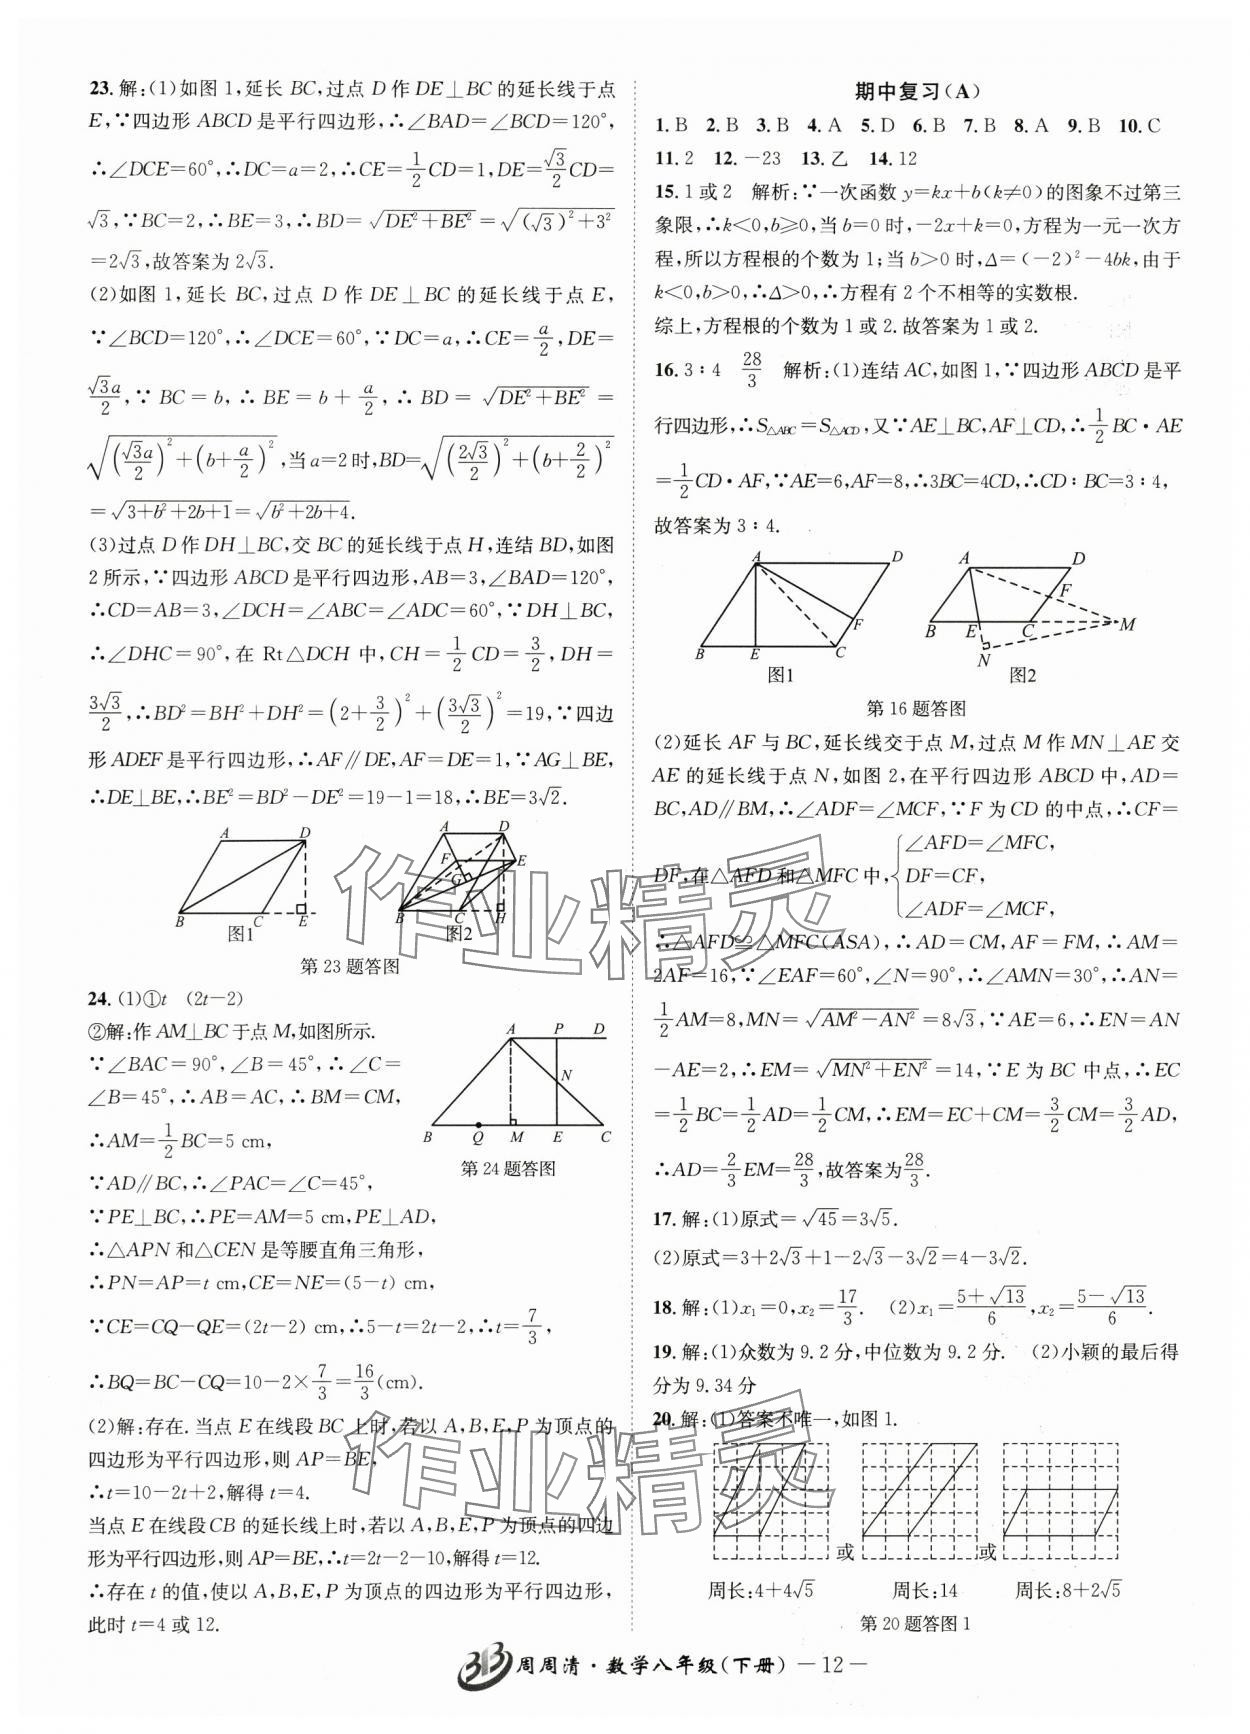 23. 解:(1)如图 1,延长 BC,过点 D 作 DE⊥BC 的延长线于点
E,∵四边形 ABCD 是平行四边形,∴∠BAD=∠BCD=120°,
∴∠DCE=60°,∴DC=a=2,∴CE=1/2CD=1,DE=√3/2CD=
√3,∵BC=2,∴BE=3,∴BD=√(DE²+BE²)=√((√3)²+3²)
=2√3,故答案为 2√3.
(2)如图 1,延长 BC,过点 D 作 DE⊥BC 的延长线于点 E,
∵∠BCD=120°,∴∠DCE=60°,∵DC=a,∴CE=a/2,DE=
√3a/2,∵BC=b,∴BE=b+a/2,∴BD=√(DE²+BE²)=
√((√3a/2)²+(b+a/2)²),当 a=2 时,BD=√((2√3/2)²+(b+2/2)²)
=√(3+b²+2b+1)=√(b²+2b+4).
(3)过点 D 作 DH⊥BC,交 BC 的延长线于点 H,连结 BD,如图
2 所示,∵四边形 ABCD 是平行四边形,AB=3,∠BAD=120°,
∴CD=AB=3,∠DCH=∠ABC=∠ADC=60°,∵DH⊥BC,
∴∠DHC=90°,在 Rt△DCH 中,CH=1/2CD=3/2,DH=
3√3/2,∴BD²=BH²+DH²=(2+3/2)²+(3√3/2)²=19,∵四边
形 ADEF 是平行四边形,∴AF∥DE,AF=DE=1,∵AG⊥BE,
∴DE⊥BE,∴BE²=BD²-DE²=19-1=18,∴BE=3√2.
A D B C E
图1
A D F E G B C H
图2
第 23 题答图
24. (1)①t (2t-2)
②解:作 AM⊥BC 于点 M,如图所示.
∵∠BAC=90°,∠B=45°,∴∠C=
∠B=45°,∴AB=AC,∴BM=CM,
∴AM=1/2BC=5 cm,
∵AD∥BC,∴∠PAC=∠C=45°,
∵PE⊥BC,∴PE=AM=5 cm,PE⊥AD,
∴△APN 和△CEN 是等腰直角三角形,
∴PN=AP=t cm,CE=NE=(5-t) cm,
∵CE=CQ-QE=(2t-2) cm,∴5-t=2t-2,∴t=7/3,
∴BQ=BC-CQ=10-2×7/3=16/3(cm).
A P D N B Q M E C
第 24 题答图
(2)解:存在. 当点 E 在线段 BC 上时,若以 A,B,E,P 为顶点的
四边形为平行四边形,则 AP=BE,
∴t=10-2t+2,解得 t=4.
当点 E 在线段CB 的延长线上时,若以 A,B,E,P 为顶点的四边
形为平行四边形,则 AP=BE,∴t=2t-2-10,解得 t=12.
∴存在 t 的值,使以 A,B,E,P 为顶点的四边形为平行四边形,
此时 t=4 或 12.
期中复习(A)
1. B 2. B 3. B 4. A 5. D 6. B 7. B 8. A 9. B 10. C
11. 2 12. -23 13. 乙 14. 12
15. 1 或 2 解析:∵一次函数 y=kx+b(k≠0)的图象不过第三
象限,∴k<0,b≥0,当 b=0 时,-2x+k=0,方程为一元一次方
程,所以方程根的个数为 1;当 b>0 时,Δ=(-2)²-4bk,由于
k<0,b>0,∴Δ>0,∴方程有 2 个不相等的实数根.
综上,方程根的个数为 1 或 2.故答案为 1 或 2.
16. 3∶4 28/3 解析:(1)连结 AC,如图 1,∵四边形 ABCD 是平
行四边形,∴S△ABC=S△ACD,又∵AE⊥BC,AF⊥CD,∴1/2BC·AE
=1/2CD·AF,∵AE=6,AF=8,∴3BC=4CD,∴CD∶BC=3∶4,
故答案为 3∶4.
A D F B E C
图1
A D F B E C M N
图2
第 16 题答图
(2)延长 AF 与 BC,延长线交于点 M,过点 M 作 MN⊥AE 交
AE 的延长线于点 N,如图 2,在平行四边形 ABCD 中,AD=
BC,AD∥BM,∴∠ADF=∠MCF,∵F 为 CD 的中点,∴CF=
DF,在△AFD 和△MFC 中,{∠AFD=∠MFC,
DF=CF,
∠ADF=∠MCF,
∴△AFD≌△MFC(ASA),∴AD=CM,AF=FM,∴AM=
2AF=16,∵∠EAF=60°,∠N=90°,∴∠AMN=30°,∴AN=
1/2AM=8,MN=√(AM²-AN²)=8√3,∵AE=6,∴EN=AN
-AE=2,∴EM=√(MN²+EN²)=14,∵E 为 BC 中点,∴EC
=1/2BC=1/2AD=1/2CM,∴EM=EC+CM=3/2CM=3/2AD,
∴AD=2/3EM=28/3,故答案为28/3.
17. 解:(1)原式=√45=3√5.
(2)原式=3+2√3+1-2√3-3√2=4-3√2.
18. 解:(1)x₁=0,x₂=17/3. (2)x₁=(5+√13)/6,x₂=(5-√13)/6.
19. 解:(1)众数为 9.2 分,中位数为 9.2 分. (2)小颖的最后得
分为 9.34 分
20. 解:(1)答案不唯一,如图 1.
或 或
周长:4+4√5 周长:14 周长:8+2√5
第 20 题答图 1
周周清·数学八年级(下册) —12—
作业精灵
作业精灵